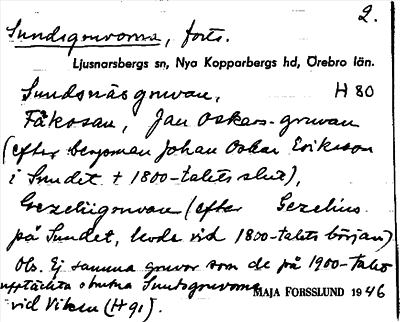 2.
Sundsgruvorna, forts.
Ljusnarsbergs sn, Nya Kopparbergs hd, Örebro län.
Sundsnäsgruvan, H 80
Fåkosan, Jan Oskars-gruvan
(efter bergsman Johan Oskar Eriksson
i Sundet + 1800-talets slut),
Gezeliigruvan (efter Gezelius
på Sundet, levde vid 1800-talets början)
Obs. Ej samma gruvor som de på 1900-talet
upptäckta obrutna Sundsgruvorna
vid Viken (H 91).
MAJA FORSSLUND 1946